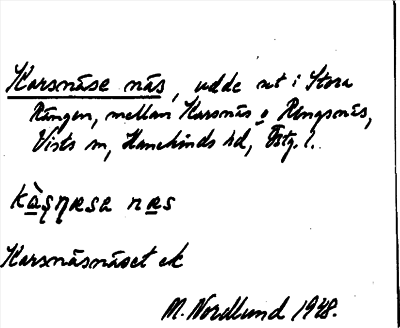 Karsnäse näs, udde ut i Stora
Rängen, mellan Karsnäs o Rengsnäs,
Vists sn, Hanekinds hd, Östg. l.
kàʂn̥æsa næs
Karsnäsnäset ek
M. Nordlund 1948.